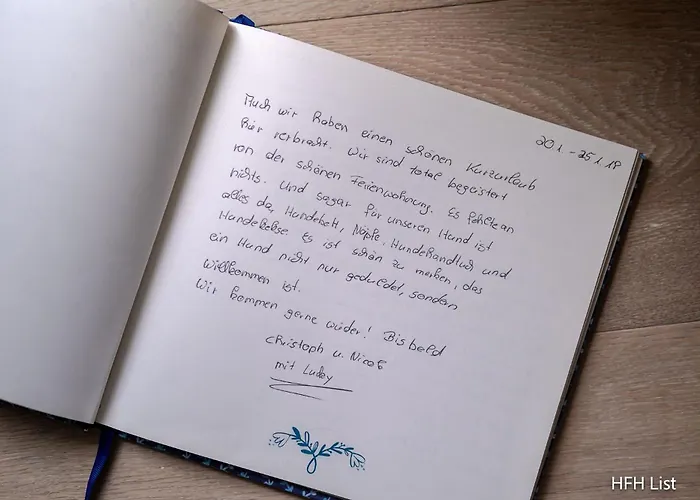 20.1. - 25.1.18
Auch wir haben einen schönen Kurzurlaub
hier verbracht. Wir sind total begeistert
von der schönen Ferienwohnung. Es fehlte an
nichts. Und sogar für unseren Hund ist
alles da, Hundebett, Näpfe, Hundehandtuch und
Hundekekse. Es ist schön zu merken, das
ein Hund nicht nur geduldet, sondern
willkommen ist.
Wir kommen gerne wieder! Bis bald
Christoph u. Nicole
mit
HFH List